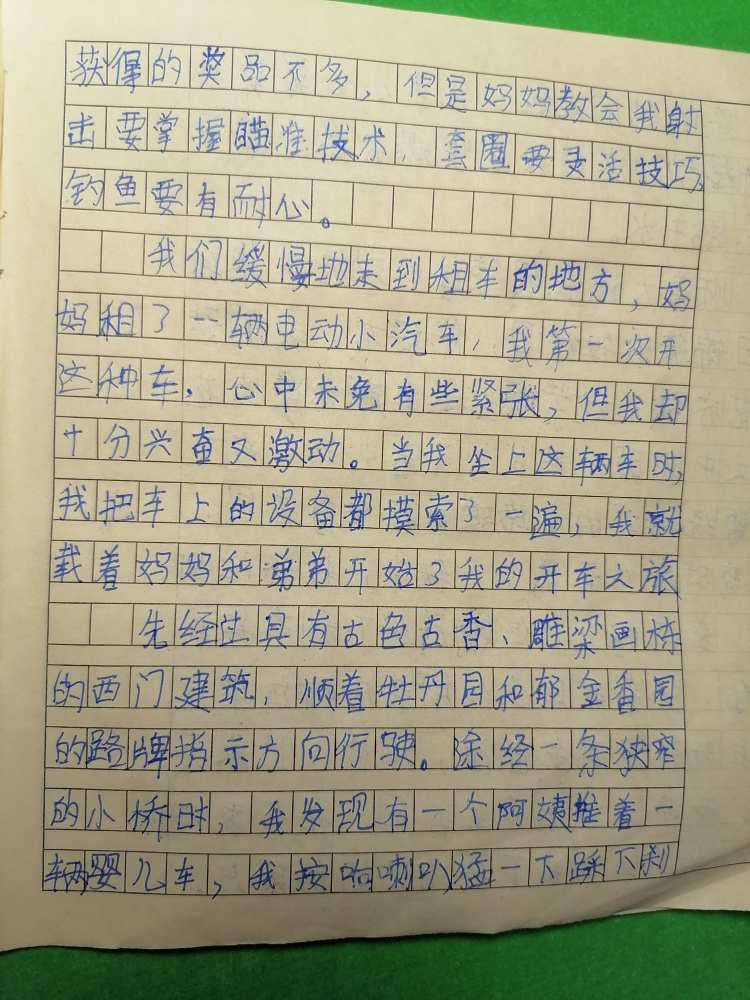 获得的奖品不多，但是妈妈教会我射
击要掌握瞄准技术，套圈要灵活技巧，
钓鱼要有耐心。
我们缓慢地来到租车的地方，妈
妈租了一辆电动小汽车，我第一次开
这种车，心中未免有些紧张，但我却
十分兴奋又激动。当我坐上这辆车时，
我把车上的设备都摸索了一遍，我就
载着妈妈和弟弟开始了我的开车之旅
先经过具有古色古香、雕梁画栋
的西门建筑，顺着牡丹园和郁金香园
的路牌指示方向行驶。途经一条狭窄
的小桥时，我发现有一个阿姨推着一
辆婴儿车，我按响喇叭猛一下踩下刹